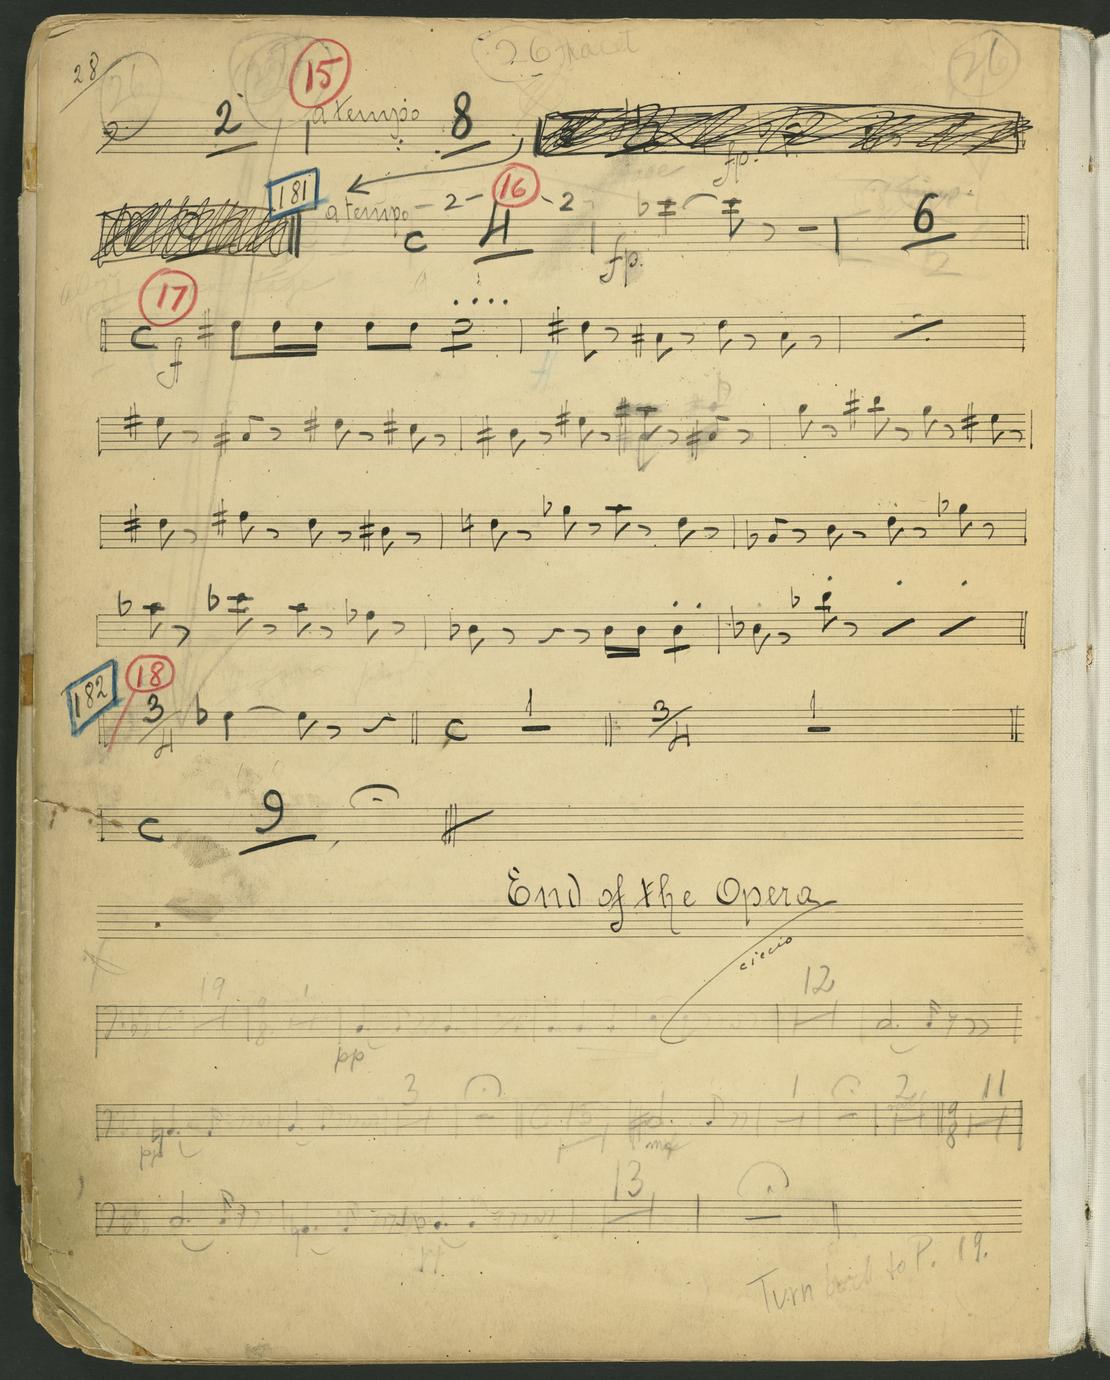 28 26 15 26 tacet 26
2 a tempo 8
fp.
181 a tempo -2- 16 -2
4 fp. 6
17
f
182 18
3/4 1 3/4 1
9
End of the Opera
ciccio
19 12
pp
3 1 2 11
9/8
pp mf
13
pp
Turn back to P. 19.